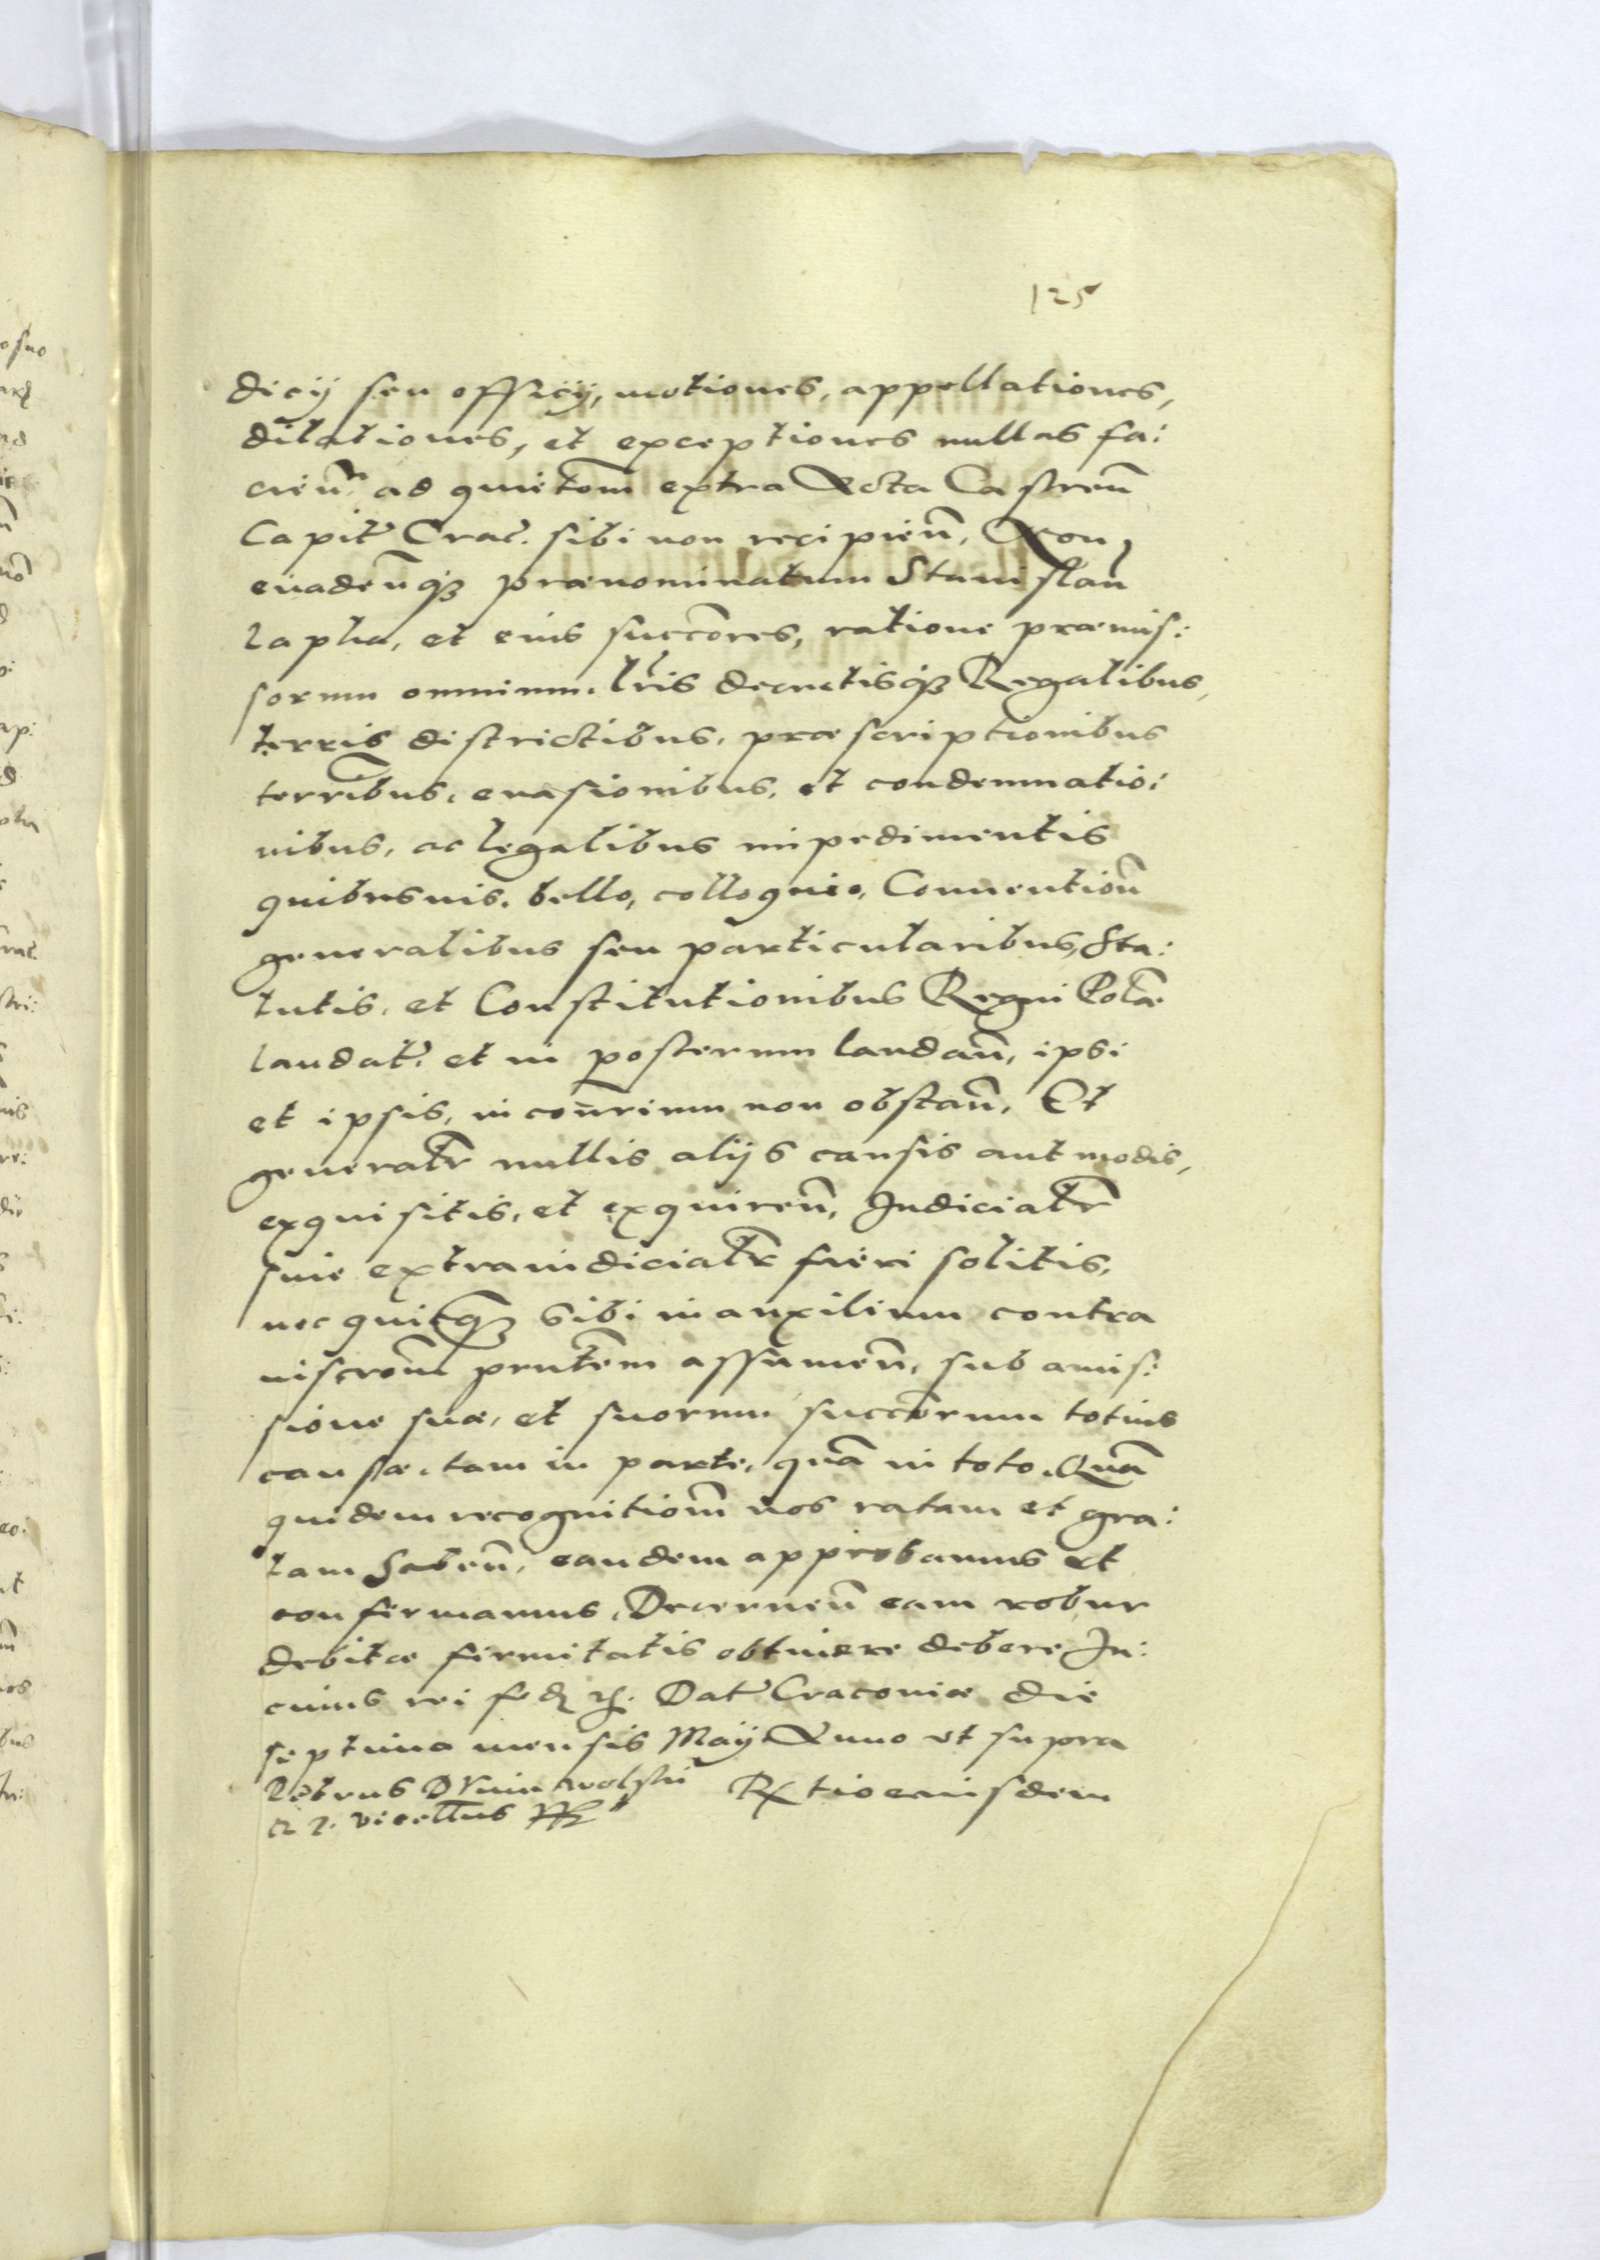 125
dicij seu officij, motiones, appellationes,
dilationes, et exceptiones nullas fa:
cien̄. ad quietom̄ extra Acta Castren̄
Capit̄ Crac̄. sibi non recipien̄,
euaden̄q₃ prænominatum Stanislau̅
Lapka, et eius succōres, ratione præmis:
sorum omnium. lr̄is decretisq₃ Regalibus,
terris districtibus, præscriptionibus
terrīibus, euasionibus, et condemnatio:
nibus, ac legalibus impedimentis
quibusuis. bello, colloquio, Conuention̄
generalibus seu particularibus, Sta:
tutis, et Constitutionibus Regni Polæ
laudat̄. et in posterum laudan̄, ipsi
et ipsis, in con̄rium non obstan̄, Et
generalr̄ nullis alijs causis aut modis,
exquisitis, et exquiren̄, Judicialr̄
siue extraiudicialr̄ fieri solitis,
nec quitq₃ sibi in auxilium contra
inscrom̄ pñtem assumen̄, sub amis:
sione suæ, et suorum succōrum totius
causæ, tam in parte, quā in toto. Quā
quidem recognitiom̄ nos ratam et gra:
tam haben̄, eandem approbamus et
confirmamus, Decernen̄ eam robur
debitæ firmitatis obtinere debere In:
cuius rei fid Dat̄ Cracouiæ die
septima mensis Maij Anno vt supra
Petrus Dunin Wolski
R P. vicecllrius Rtio eiusdem